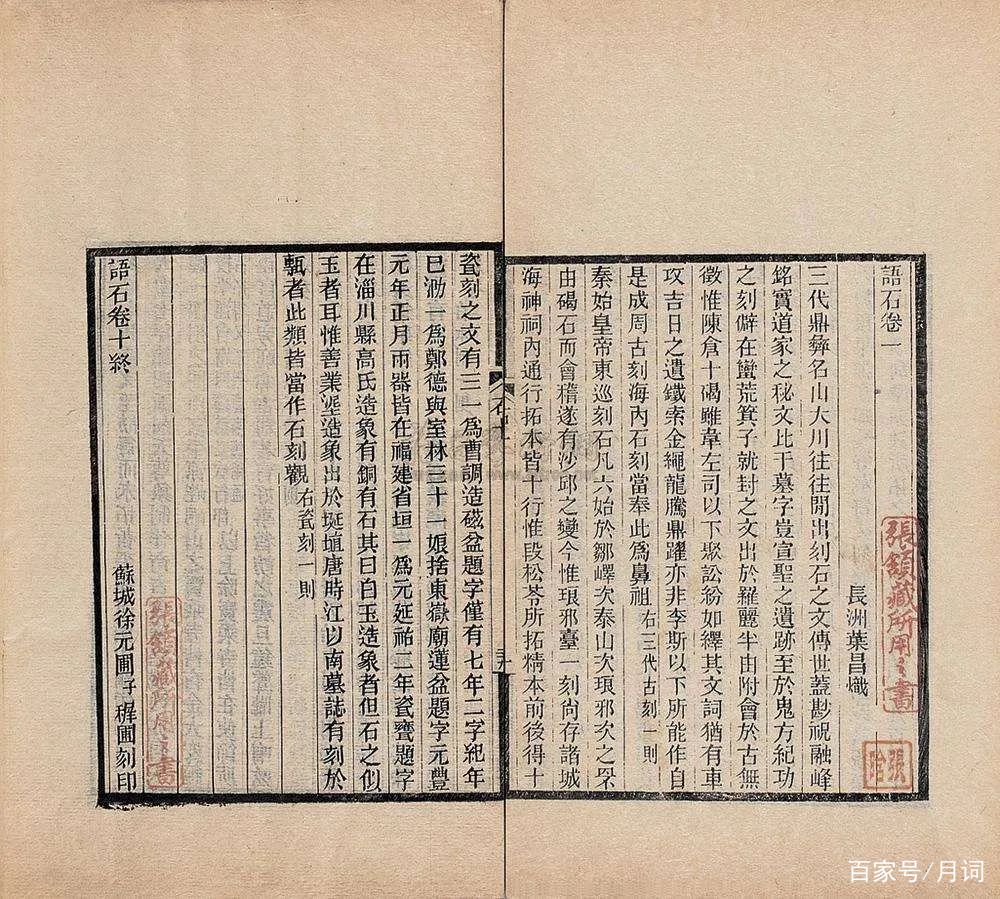 語石卷一
長洲葉昌熾
三代鼎彝名山大川往往閒出刻石之文傳世蓋尟祝融峰
銘實道家之秘文比干墓字豈宣聖之遺跡至於鬼方紀功
之刻僻在蠻荒箕子就封之文出於羅麗半由附會於古無
徵惟陳倉十碣雖韋左司以下聚訟紛如繹其文詞猶有車
攻吉日之遺鐵索金繩龍騰鼎躍亦非李斯以下所能作自
是成周古刻海內石刻當奉此爲鼻祖 右三代古刻一則
秦始皇帝東巡刻石凡六始於鄒嶧次泰山次琅邪次之罘
由碣石而會稽遂有沙邱之變今惟琅邪臺一刻尙存諸城
海神祠內通行拓本皆十行惟段松苓所拓精本前後得十
瓷刻之文有三一爲曹調造磁盆題字僅有七年二字紀年
已泐一爲鄭德與室林三十一娘捨東嶽廟蓮盆題字元豐
元年正月兩器皆在福建省垣一爲元延祐二年瓷甕題字
在淄川縣高氏造象有銅有石其曰白玉造象者但石之似
玉者耳惟善業埿造象出於埏埴唐時江以南墓誌有刻於
甎者此類皆當作石刻觀 右瓷刻一則
語石卷十終
蘇城徐元圃子稺圃刻印
張頷藏所用之書
張頷
張頷藏所用之書
百家号/月词